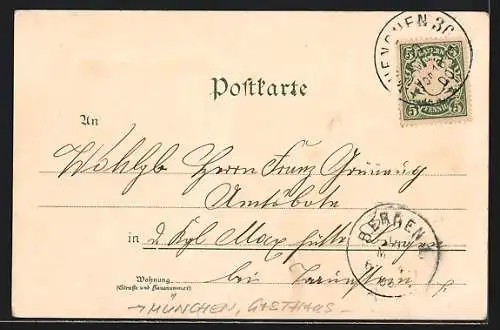 MUENCHEN 30
BAYERN
5 5
5 PFENNIG 5
Postkarte
An
Wohlgb Herrn Franz Grünwug
Amtsbote
in d Kgl Max Hütte Bergen
bei Traunstein
BERGEN
Wohnung
(Straße und Hausnummer)
MÜNCHEN, GASTHAUS